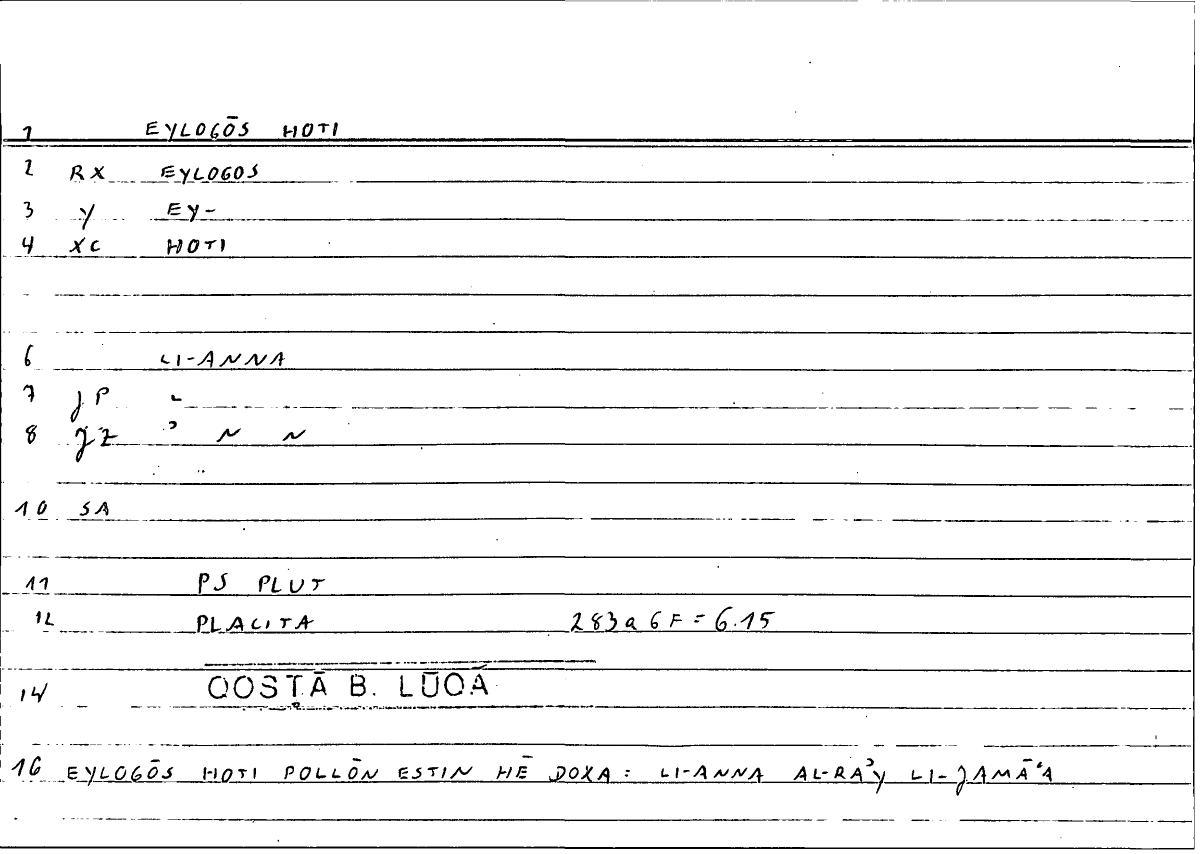 1 EYLOGŌS HOTI
2 RX EYLOGOS
3 Y EY-
4 XC HOTI
6 LI-ANNA
7 JP L
8 JZ ʾ N N
10 SA
11 PS PLUT
12 PLACITA 283a 6F = 6.15
14 QOSṬĀ B. LŪQĀ
16 EYLOGŌS HOTI POLLŌN ESTIN HĒ DOXA: LI-ANNA AL-RAʾY LI-JAMĀʿA